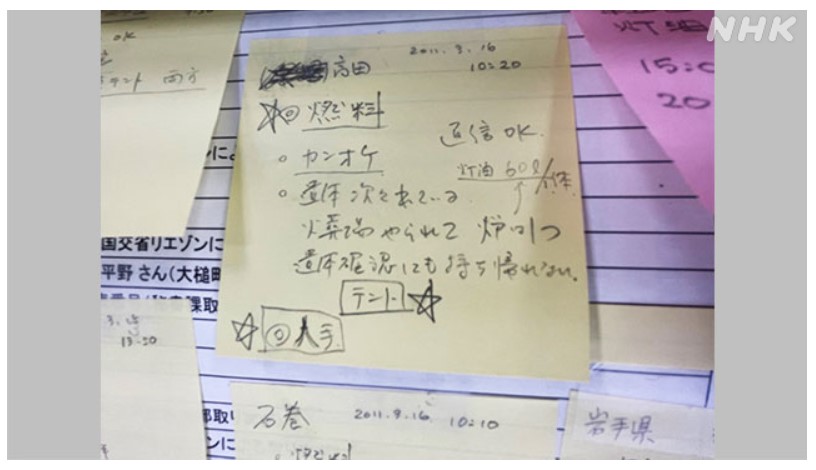 NHK
OK
テント 両方
灯油
15:0
20
2011.3.16
10:20
高田
☆◎燃料
通信OK.
○ カンオケ
灯油 50ℓ/1体
○ 遺体次々来ている
火葬場やられて 炉1つ
遺体確認しても持ち帰れない。
テント ☆
☆ ◎人手
国交省リエゾンに
平野さん(大槌町
課取
3.15
13:20
石巻 2011.3.16 10:10
○燃料
岩手県
部取り
ンに